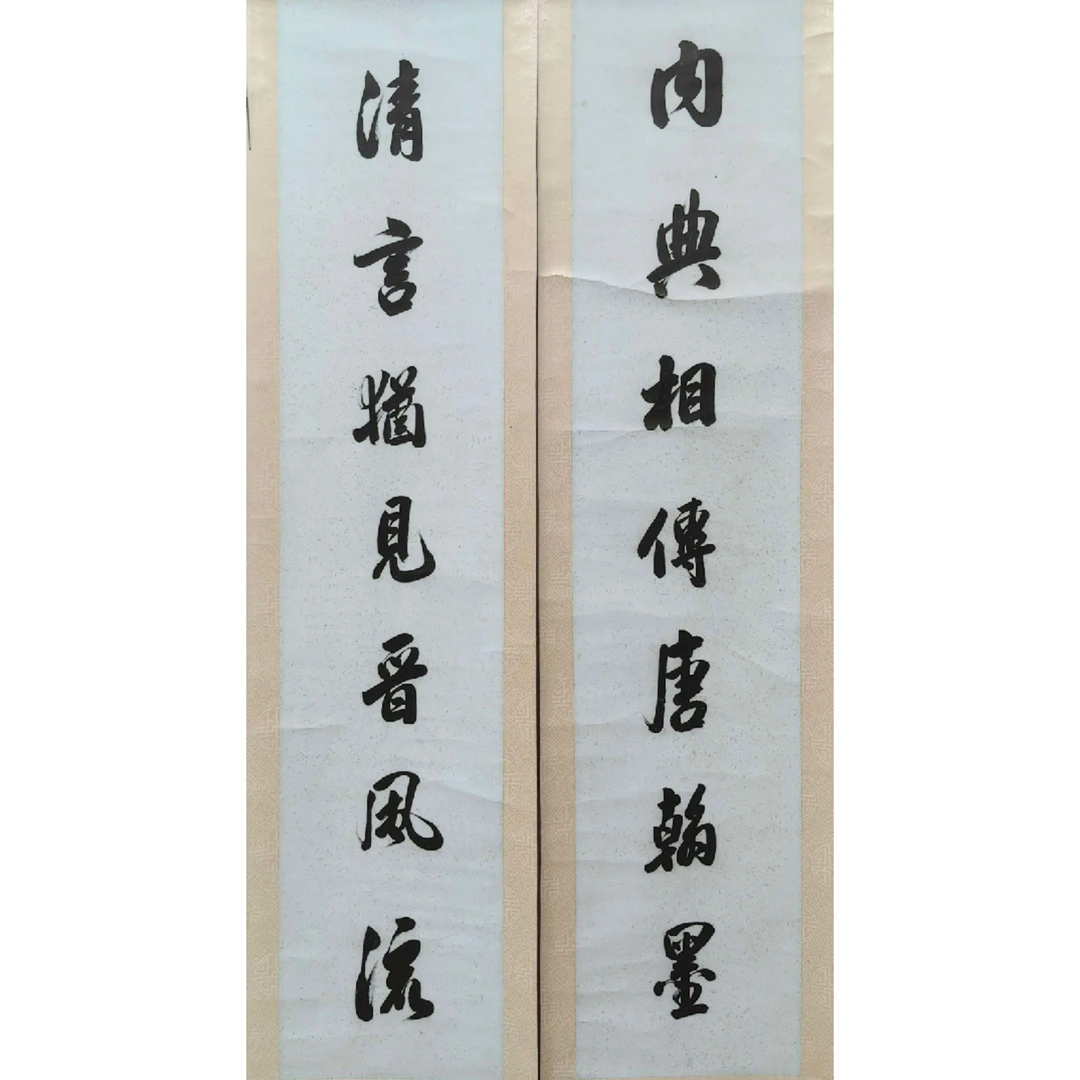 内典相傳唐翰墨
清言猶見晉風流